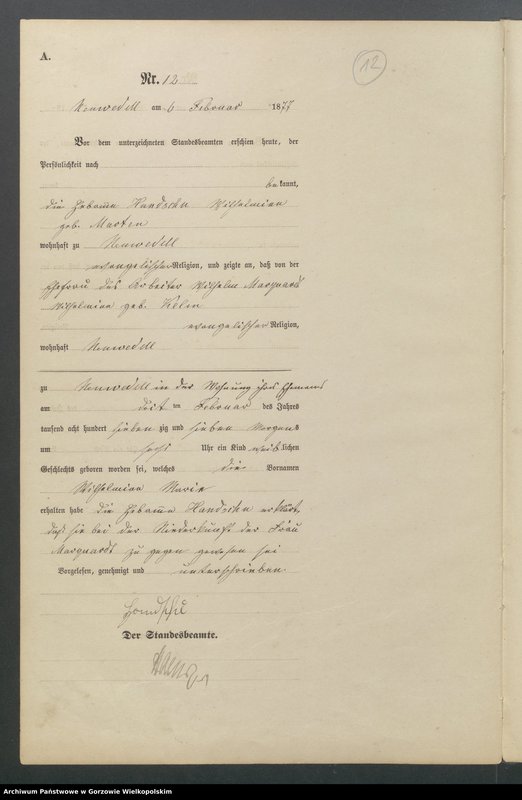 A.
12
Nr. 12
Neuwedell am 6 Februar 1877
Vor dem unterzeichneten Standesbeamten erschien heute, der
Persönlichkeit nach
bekannt,
die Hebamme Handschu Wilhelmine
geb. Marten
wohnhaft zu Neuwedell
evangelischer Religion, und zeigte an, daß von der
Ehefrau des Arbeiter Wilhelm Marquardt
Wilhelmine geb.
evangelischer Religion,
wohnhaft Neuwedell
zu Neuwedell in der Wohnung ihres Ehemanns
am ten Februar des Jahres
tausend acht hundert sieben zig und sieben Morgens
um sechs Uhr ein Kind weiblichen
Geschlechts geboren worden sei, welches die Vornamen
Wilhelmine Marie
erhalten habe die Hebamme Handschu erklärt,
daß sie bei der Niederkunft der Frau
Marquardt zu gegen gewesen sei
Vorgelesen, genehmigt und unterschrieben.
Handschu
Der Standesbeamte.
Archiwum Państwowe w Gorzowie Wielkopolskim